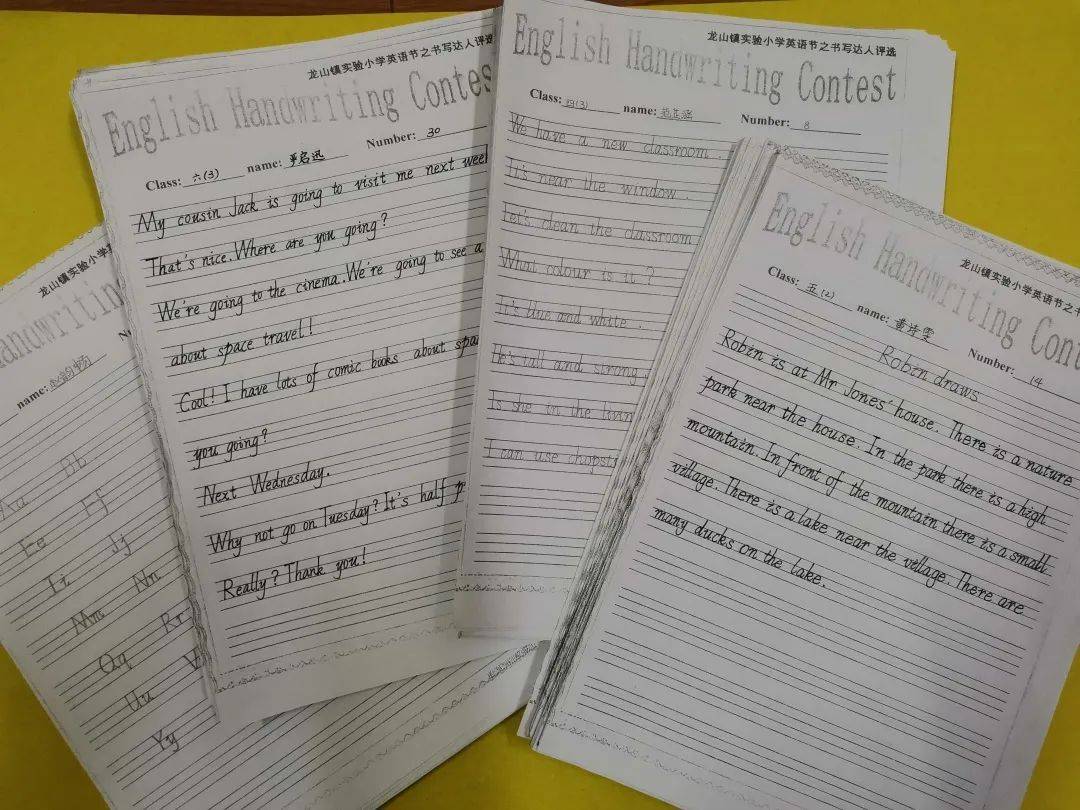 龙山镇实验小学英语节之书写达人评选
English Handwriting Contes
Class: 六(3) name: Number: 30
My cousin Jack is going to visit me next week
That's nice. Where are you going?
We're going to the cinema. We're going to see a
about space travel!
Cool! I have lots of comic books about spa
you going?
Next Wednesday.
Why not go on Tuesday? It's half p
Really? Thank you!
龙山镇实验小学英语节之书写达人评选
English Handwriting Contest
Class: 四(3) name: Number: 8
We have a new classroom.
It's near the window.
Let's clean the classroom
What colour is it?
It's blue and white.
He's tall and strong
Is she in the livin
I can use chopsti
龙山镇实验小学英语节之书
English Handwriting Cont
Class: 五(2) name: 黄诗雯 Number: 14
Robin draws
Robin is at Mr Jones' house. There is a nature
park near the house. In the park there is a high
mountain. In front of the mountain there is a small
village. There is a lake near the village. There are
many ducks on the lake.
龙山镇实验小学
andwriting
name:
Aa Bb
Ee Ff
Ii Jj
Mm Nn
Qq Rr
Uu V
Yy